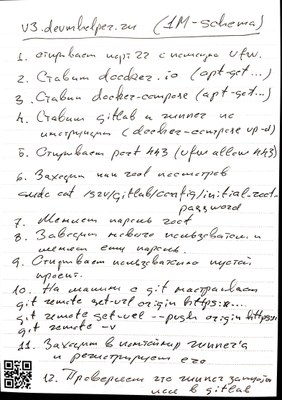 v3.devmhelper.ru (1M-schema)
1. открываем порт 22 с помощью ufw.
2. Ставим docker.io (apt-get...)
3. Ставим docker-compose (apt-get...)
4. Ставим gitlab и runner по
инструкции (docker-compose up -d)
5. Открываем port 443 (ufw allow 443)
6. Заходим под root посмотрев
sudo cat /srv/gitlab/config/initial_root_
password
7. Меняем пароль root
8. Заводим нового пользователя и
меняем ему пароль.
9. Открываем пользователю пустой
проект.
10. На машине с git настраиваем
git remote set-url origin https:
git remote set-url --push origin https:
git remote -v
11. Заходим в контейнер runner'а
и регистрируем его
12. Проверяем что runner
в gitlab